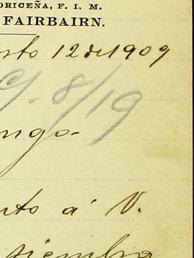 ORICEÑA, F. I. M.
FAIRBAIRN.
sto 12 de 1909
C/. 8/19
ngo.
nto á V.
siembra